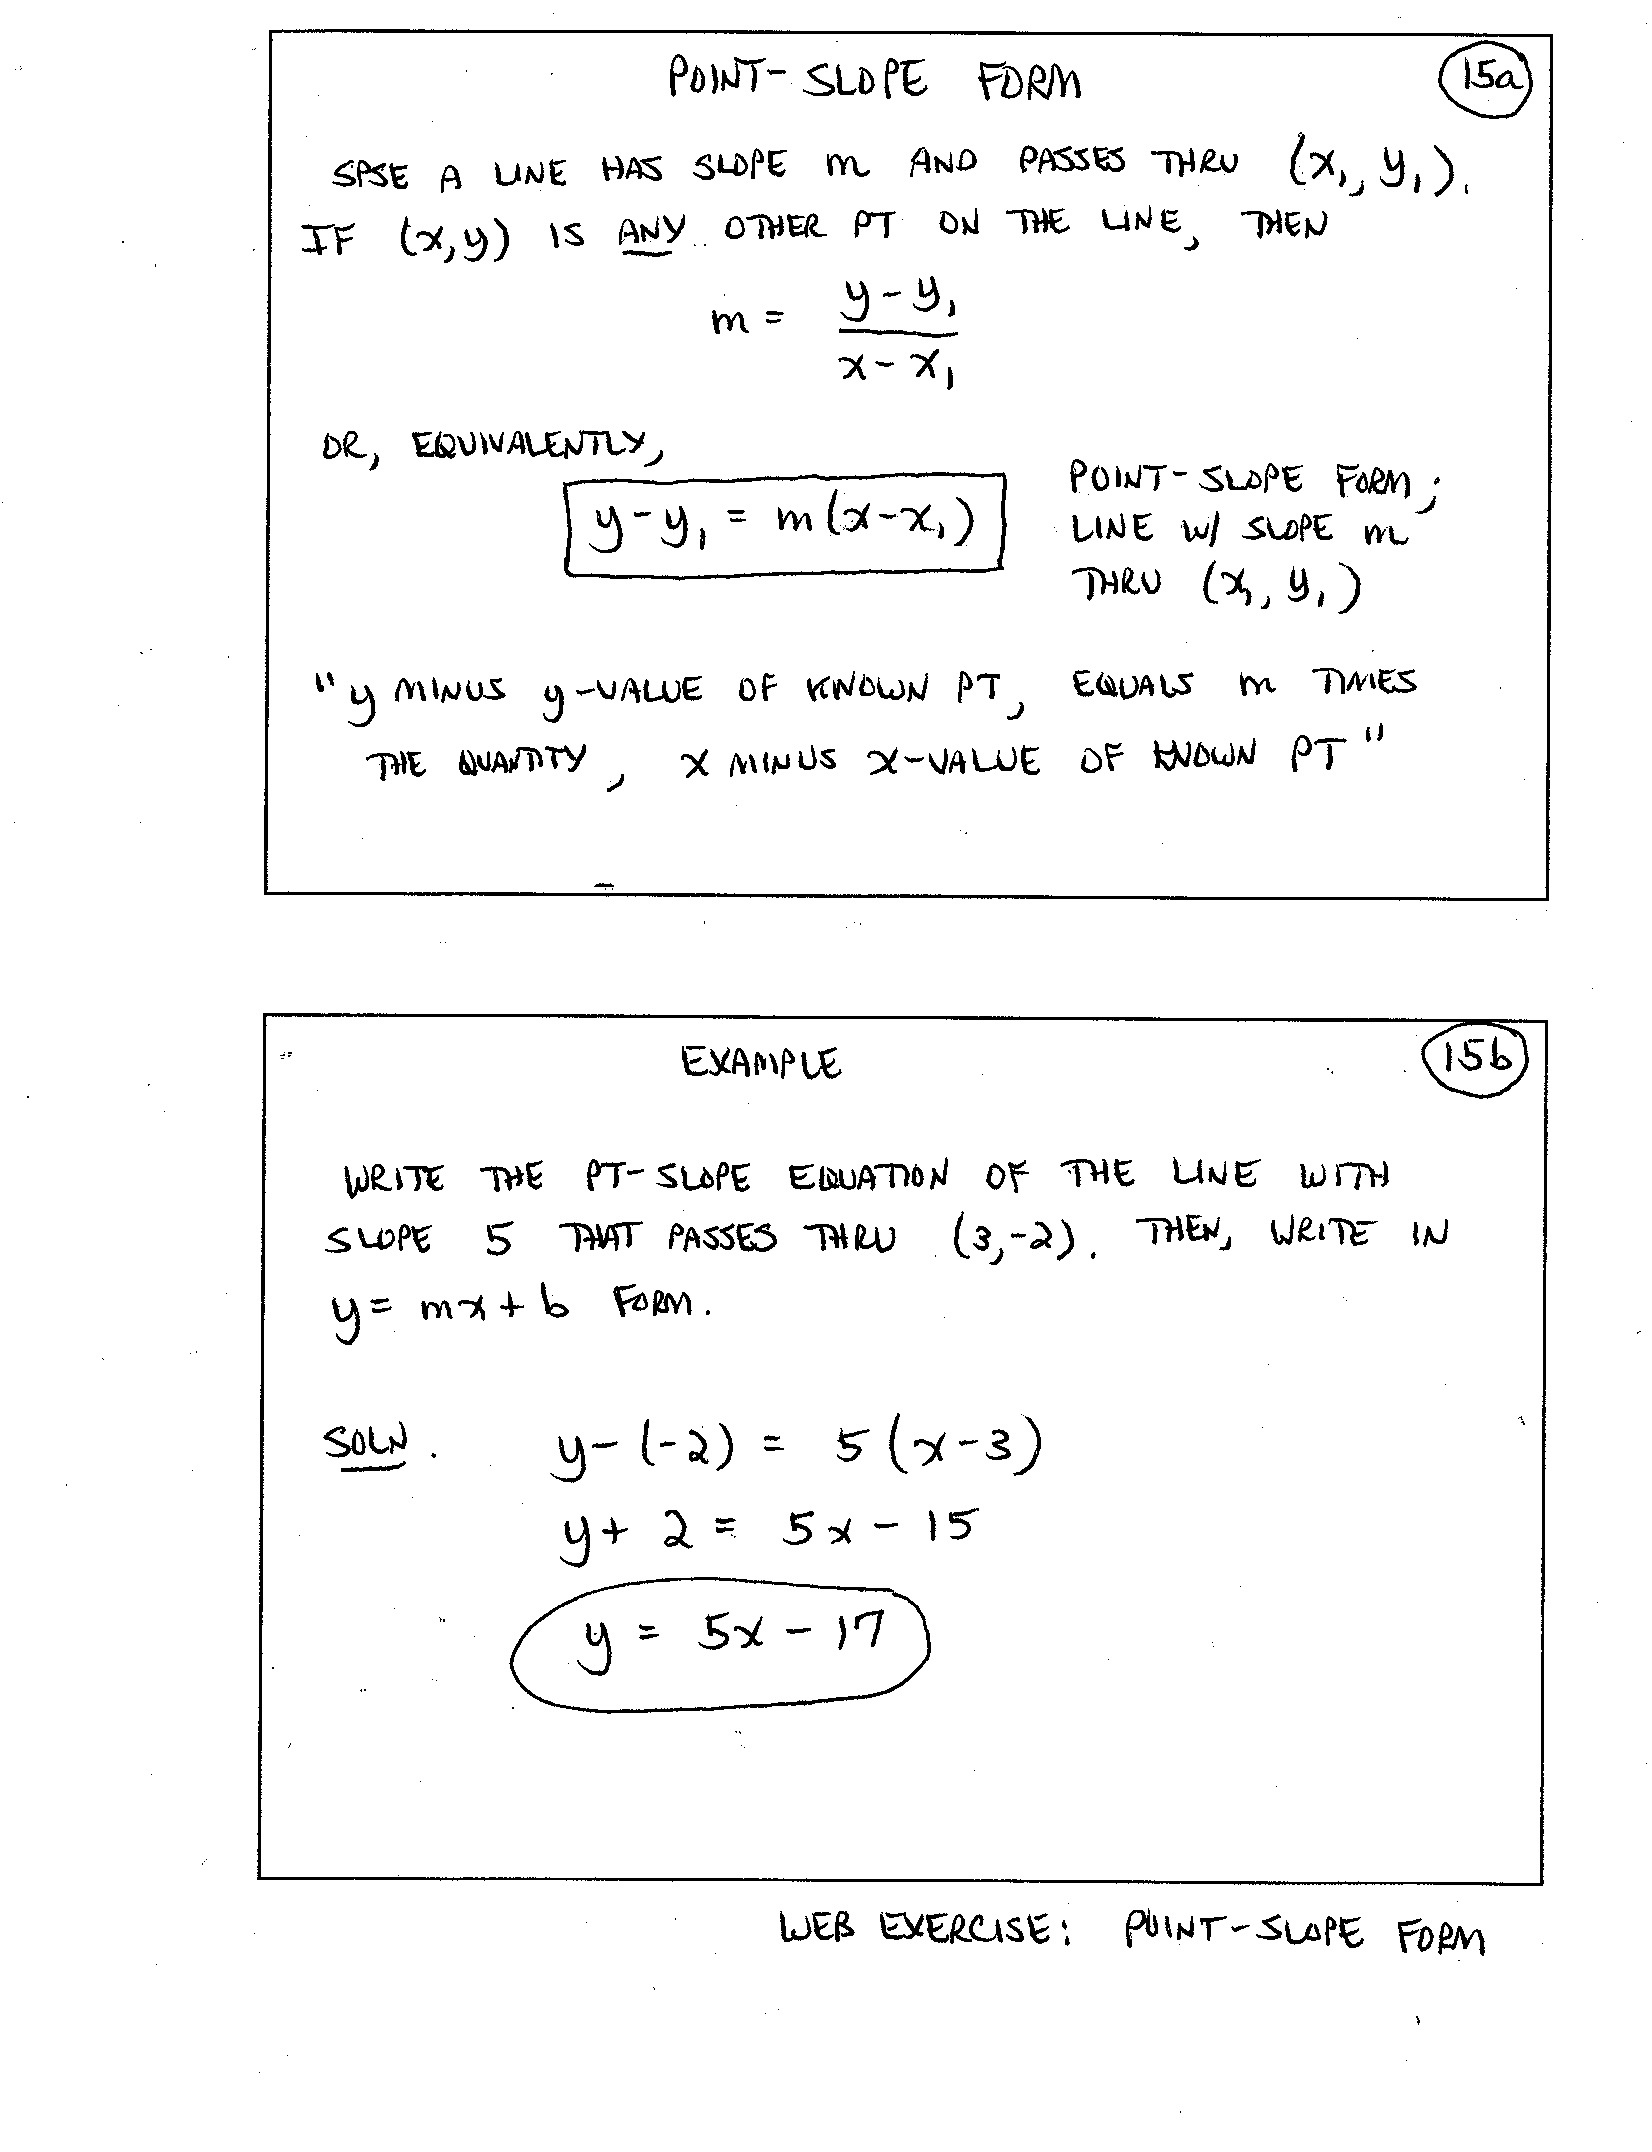 POINT-SLOPE FORM
15a
SPSE A LINE HAS SLOPE m AND PASSES THRU (x₁, y₁).
IF (x,y) IS ANY OTHER PT ON THE LINE, THEN
m = y-y₁
x-x₁
OR, EQUIVALENTLY,
y-y₁ = m(x-x₁)
POINT-SLOPE FORM;
LINE W/ SLOPE m
THRU (x₁, y₁)
"y MINUS y-VALUE OF KNOWN PT, EQUALS m TIMES
THE QUANTITY, x MINUS x-VALUE OF KNOWN PT"
EXAMPLE
15b
WRITE THE PT-SLOPE EQUATION OF THE LINE WITH
SLOPE 5 THAT PASSES THRU (3,-2). THEN, WRITE IN
y = mx + b FORM.
SOLN. y-(-2) = 5(x-3)
y + 2 = 5x - 15
y = 5x - 17
WEB EXERCISE: POINT-SLOPE FORM